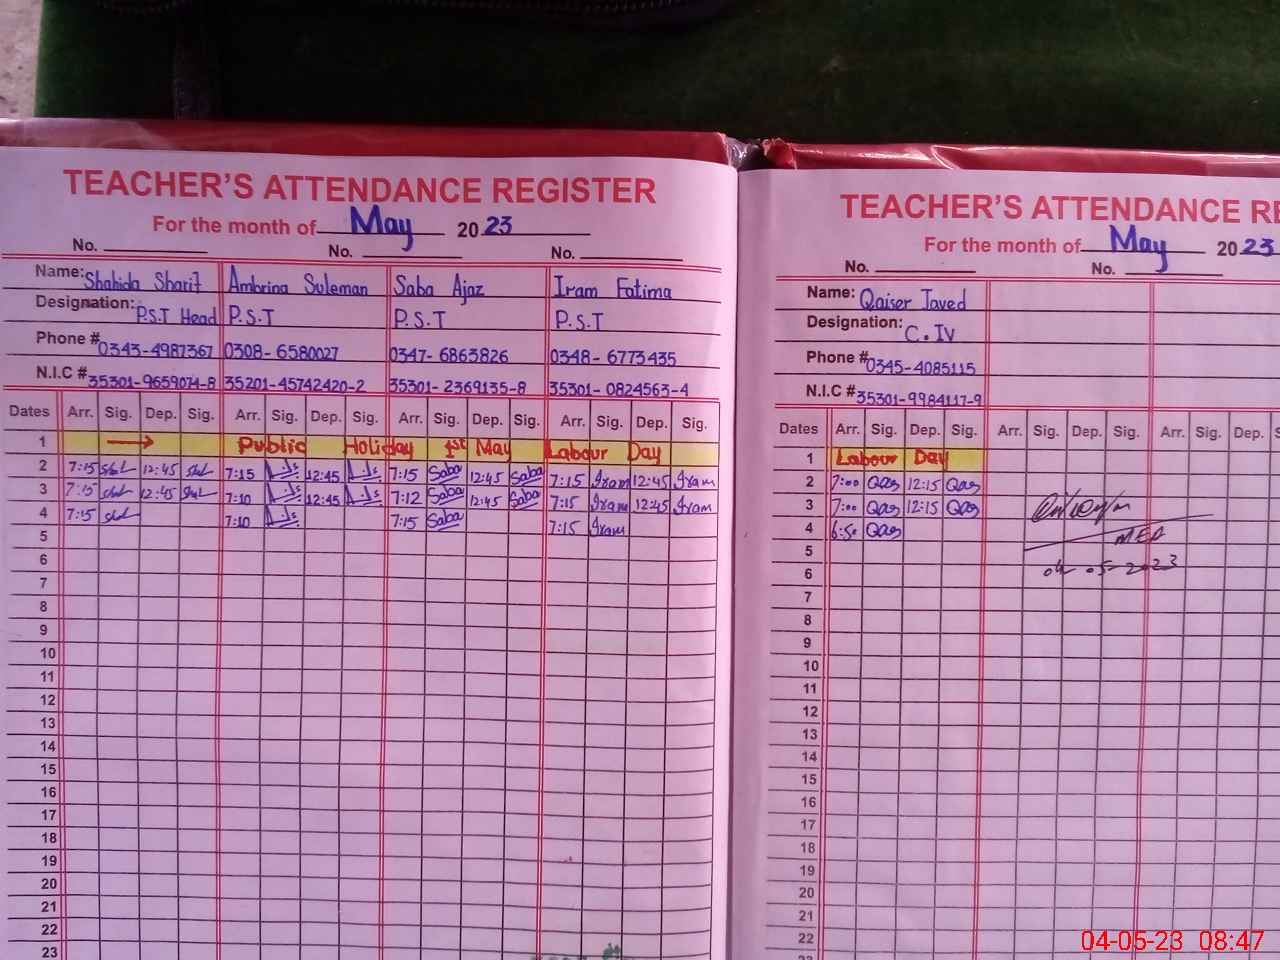 TEACHER'S ATTENDANCE REGISTER
For the month of May 2023
No. No. No.
Name: Shahida Sharif Ambrina Suleman Saba Ajaz Iram Fatima
Designation: P.S.T Head P.S.T P.S.T P.S.T
Phone # 0343-4987367 0308-6580027 0347-6863826 0348-6773435
N.I.C # 35301-9659074-8 35201-45742420-2 35301-2369135-8 35301-0824563-4
Dates Arr. Sig. Dep. Sig. Arr. Sig. Dep. Sig. Arr. Sig. Dep. Sig. Arr. Sig. Dep. Sig.
1 → Public Holiday 1st May Labour Day
2 7:15 12:45 7:15 12:45 7:15 Saba 12:45 Saba 7:15 Iram 12:45 Iram
3 7:15 12:45 7:10 12:45 7:12 Saba 12:45 Saba 7:15 Iram 12:45 Iram
4 7:15 7:10 7:15 Saba 7:15 Iram
5
6
7
8
9
10
11
12
13
14
15
16
17
18
19
20
21
22
23
TEACHER'S ATTENDANCE RE
For the month of May 2023
No. No.
Name: Qaiser Javed
Designation: C.IV
Phone # 0345-4085115
N.I.C # 35301-9984117-9
Dates Arr. Sig. Dep. Sig. Arr. Sig. Dep. Sig. Arr. Sig. Dep. S
1 Labour Day
2 7:00 Qas 12:15 Qas
3 7:00 Qas 12:15 Qas
4 6:50 Qas
5 MEA
6 04-05-2023
7
8
9
10
11
12
13
14
15
16
17
18
19
20
21
22
04-05-23 08:47